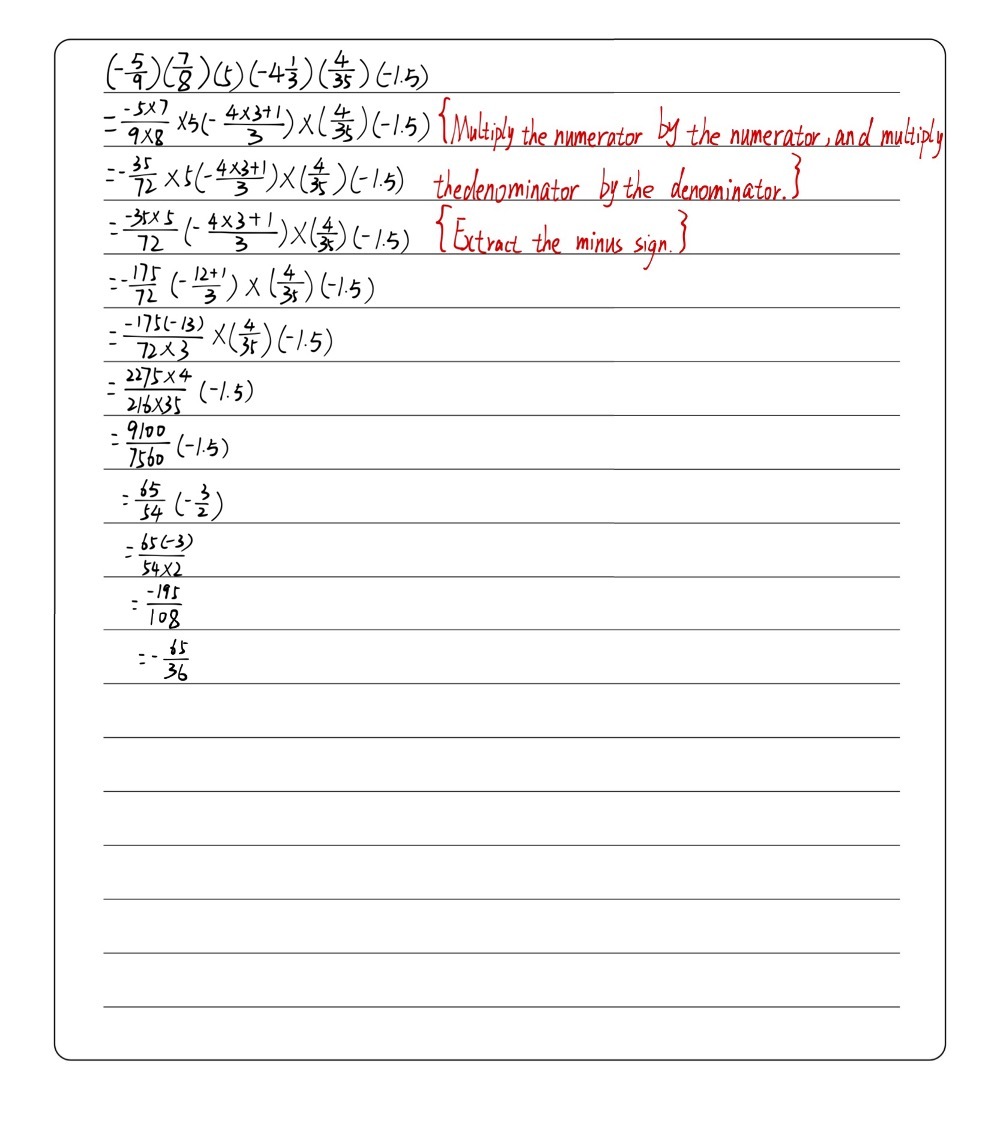 (-5/9)(7/8)(5)(-4 1/3)(4/35)(-1.5)
= (-5×7)/(9×8) ×5(-(4×3+1)/3)×(4/35)(-1.5) {Multiply the numerator by the numerator, and multiply
= -35/72 ×5(-(4×3+1)/3)×(4/35)(-1.5) thedenominator by the denominator.}
= (-35×5)/72 (-(4×3+1)/3)×(4/35)(-1.5) {Extract the minus sign.}
= -175/72 (-(12+1)/3)×(4/35)(-1.5)
= (-175(-13))/(72×3) ×(4/35)(-1.5)
= (2275×4)/(216×35) (-1.5)
= 9100/7560 (-1.5)
= 65/54 (-3/2)
= (65(-3))/(54×2)
= (-195)/108
= -65/36